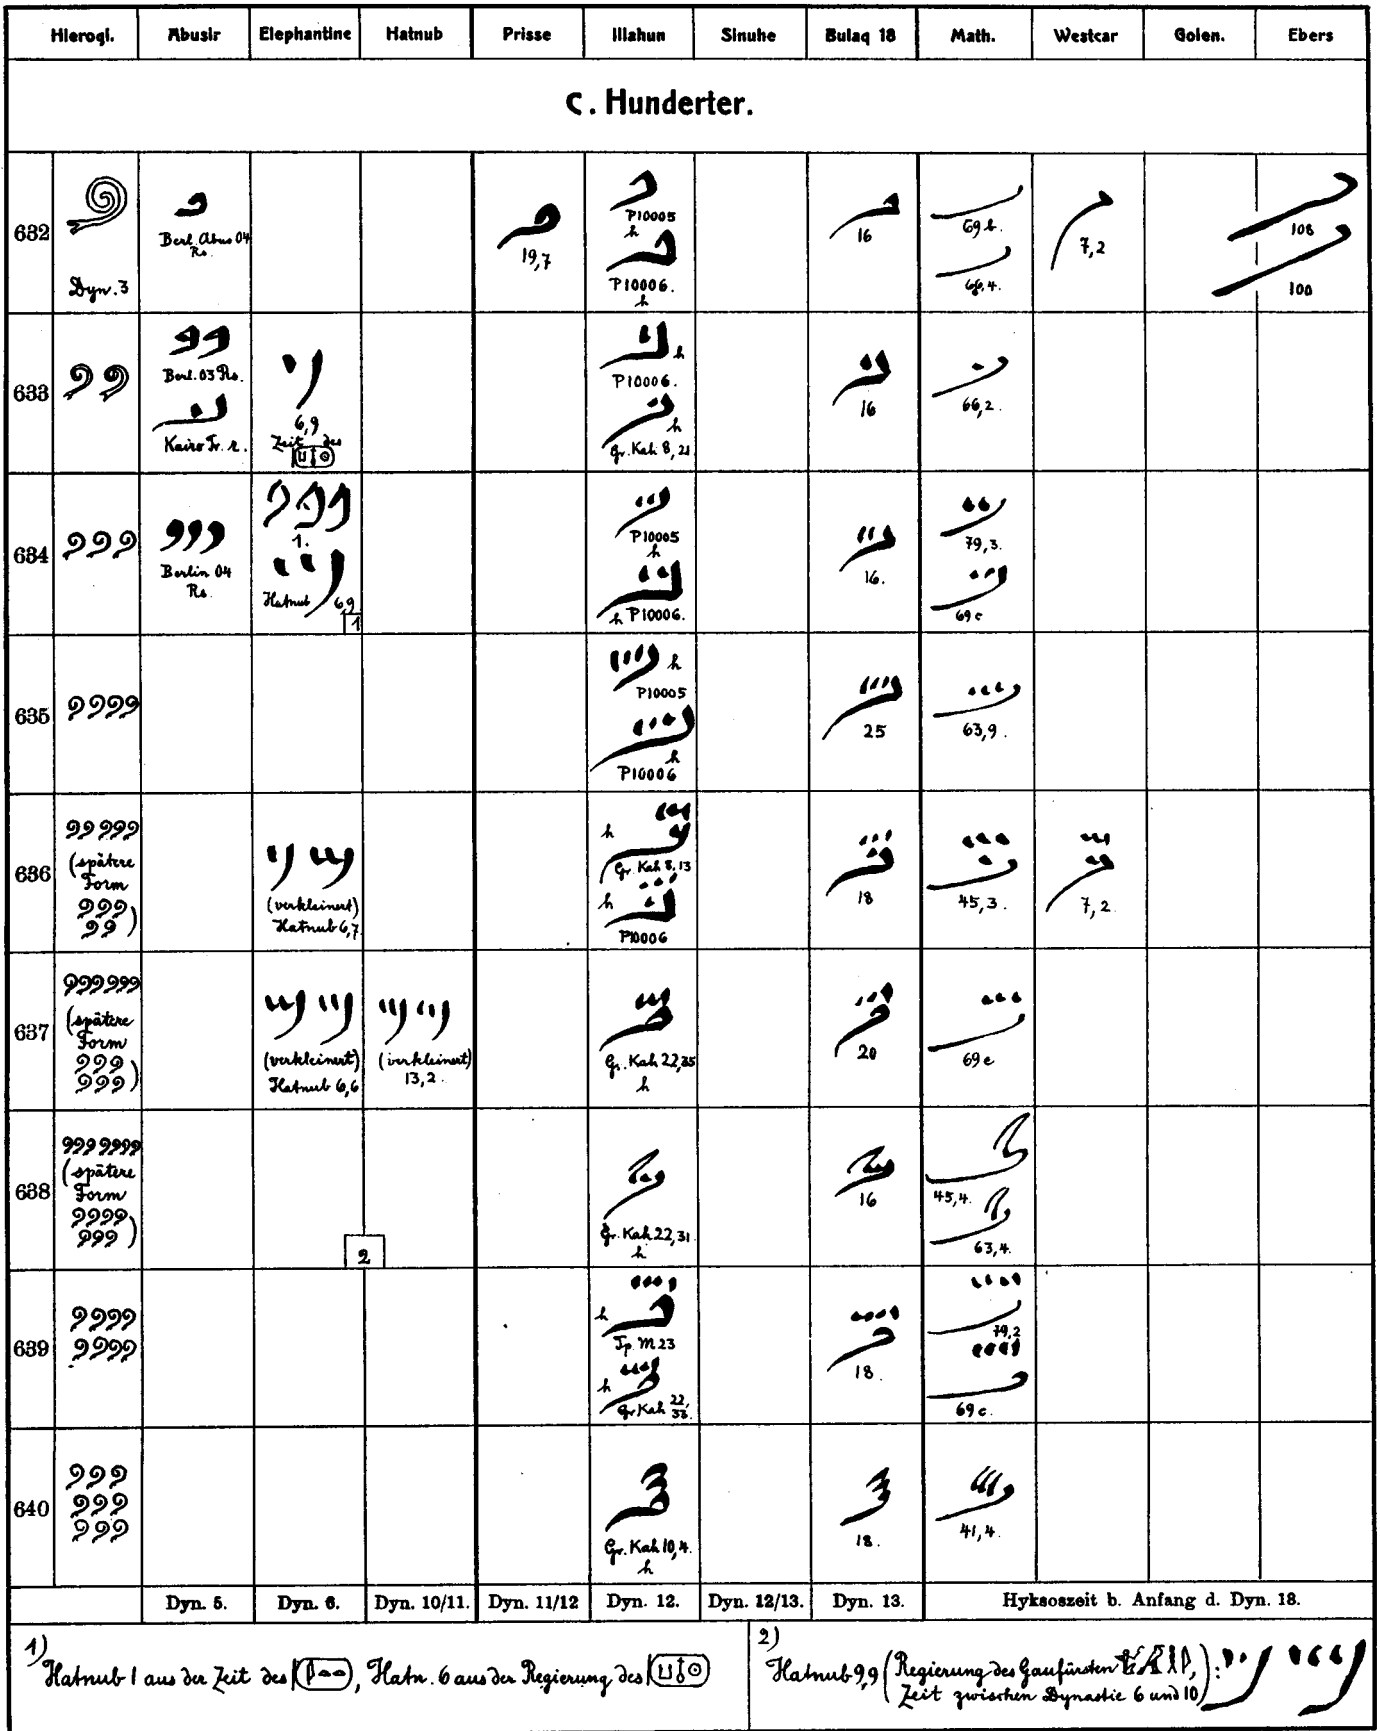 Hierogl. Abusir Elephantine Hatnub Prisse Illahun Sinuhe Bulaq 18 Math. Westcar Golen. Ebers
C. Hunderter.
632
Dyn. 3
Berl. Abus 04
Rs.
19,7
P10005
h
P10006.
h
16
69 b.
66,4.
7,2
108
100
633
Berl. 03 Rs.
Kairo Fr. r.
6,9
Zeit des
P10006.
h
h
Gr. Kah 8,21
16
66,2.
634
Berlin 04
Rs.
1.
Hatnub 6,9
1
P10005
h
h P10006.
16.
79,3.
69 c
635
h
P10005
h
P10006
25
63,9.
636
(spätere
Form
)
(verkleinert)
Hatnub 6,7
h
Gr. Kah 8,13
h
P10006
18
45,3.
7,2.
637
(spätere
Form
)
(verkleinert)
Hatnub 6,6
(verkleinert)
13,2.
Gr. Kah 22,35
h
20
69 c
638
(spätere
Form
)
2
Gr. Kah 22,31
h
16
45,4.
63,4.
639
h
Tp. M 23
h
Gr Kah 22,
33.
18.
79,2
69 c.
640
Gr. Kah 10,4.
h
18.
41,4.
Dyn. 5. Dyn. 6. Dyn. 10/11. Dyn. 11/12 Dyn. 12. Dyn. 12/13. Dyn. 13. Hyksoszeit b. Anfang d. Dyn. 18.
1)
Hatnub 1 aus der Zeit des , Hatn. 6 aus der Regierung des
2)
Hatnub 9,9 (Regierung des Gaufürsten ,
Zeit zwischen Dynastie 6 und 10):